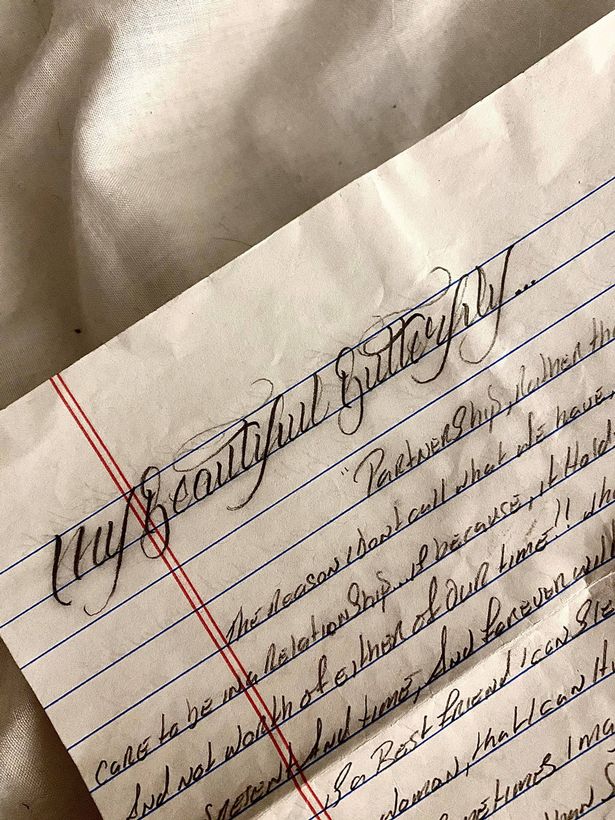 My Beautiful Butterfly...
"Partnership, Rather tha
The Reason I Don't call what we have,
care to be in a Relationship...is because, it Holds
And not worth of either of our time!!
Present And time, And forever will
is a Best friend I can
woman, that I can
sometimes I ma